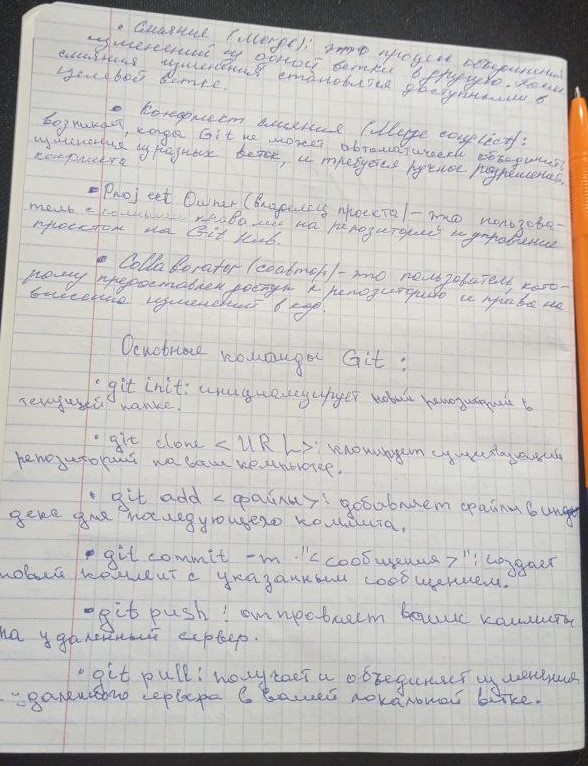 • Слияние (Merge): это процесс объединения
изменений из одной ветки в другую. После
слияния изменения становятся доступными в
целевой ветке.
• Конфликт слияния (Merge conflict):
возникает, когда Git не может автоматически объединить
изменения из разных веток, и требуется ручное разрешение
конфликта
• Project Owner (владелец проекта) - это пользова-
тель с полными правами на репозиторий и управление
проектом на GitHub.
• Collaborator (соавтор) - это пользователь, кото-
рому предоставлен доступ к репозиторию и права на
внесение изменений в код.
Основные команды Git :
• git init: инициализирует новый репозиторий в
текущей папке.
• git clone <URL>: клонирует существующий
репозиторий на ваш компьютер.
• git add <файлы>: добавляет файлы в инде
декс для последующего коммита.
• git commit -m "<сообщения>": создает
новый коммит с указанным сообщением.
• git push: отправляет ваши коммиты
на удаленный сервер.
• git pull: получает и объединяет изменения
удаленного сервера в вашей локальной ветке.